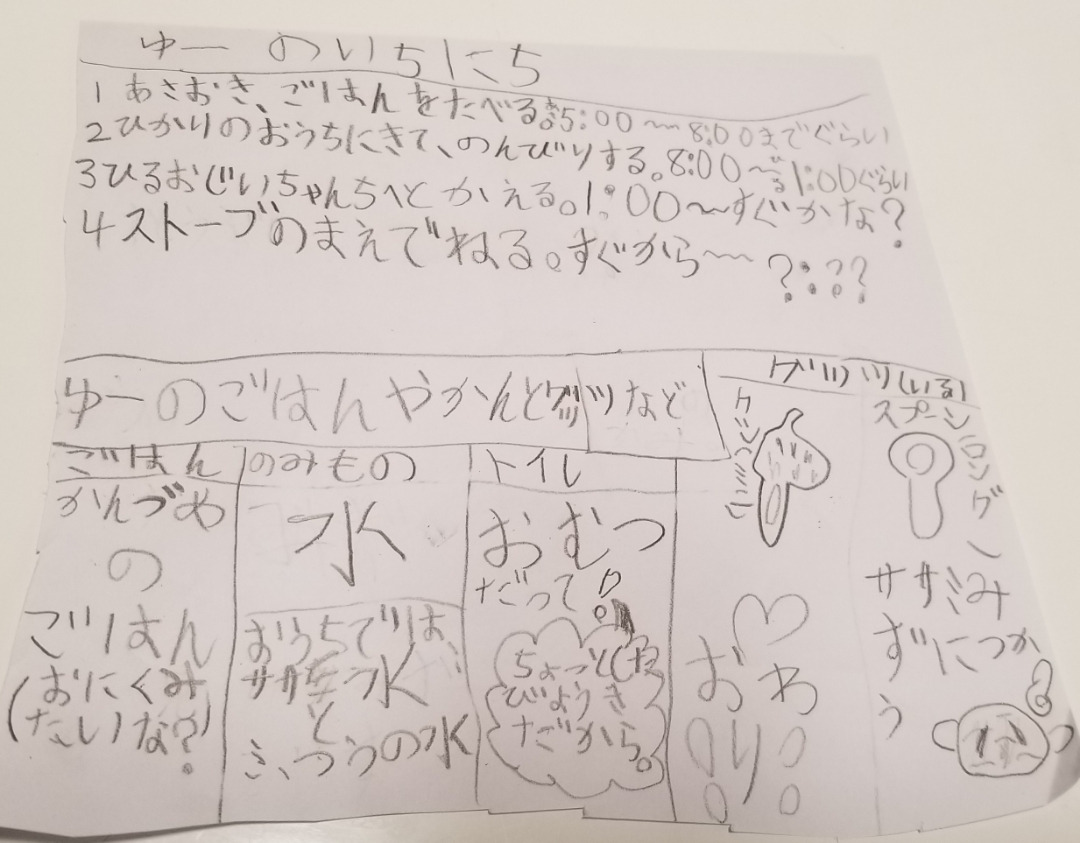 ゆーのいちにち
1 あさおき、ごはんをたべる。5:00〜8:00までぐらい
2 ひかりのおうちにきて、のんびりする。8:00〜1:00ぐらい
3 ひるおじいちゃんちへとかえる。1:00〜すぐかな?
4 ストーブのまえでねる。すぐから〜?:??
ゆーのごはんやかんとグッツなど
ごはん
かんづめ
の
ごはん
(おにくみ
たいな?)
のみもの
水
おうちでは、
ササミ水
と
ふつうの水
トイレ
おむつ
だって!
ちょっとした
びょうき
だから。
グッツ(いる)
おわ
り
スプーン
(ロング)
ササミみ
ずにつか
う